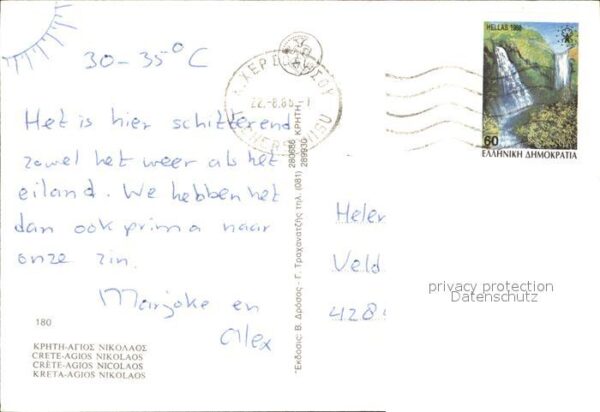 30-35°C
Het is hier schitterend
zowel het weer als het
eiland. We hebben het
dan ook prima naar
onze zin.
Marjoke en
Alex
180
ΚΡΗΤΗ-ΑΓΙΟΣ ΝΙΚΟΛΑΟΣ
CRETE-AGIOS NIKOLAOS
CRÈTE-AGIOS NICOLAOS
KRETA-AGIOS NIKOLAOS
"Εκδοσις: Β. Δρόσος - Γ. Τραχανατζής τηλ. (081) 280656 289930 ΚΡΗΤΗ
HELLAS 1988
60
ΕΛΛΗΝΙΚΗ ΔΗΜΟΚΡΑΤΙΑ
Helen
Veld
4284
privacy protection
Datenschutz